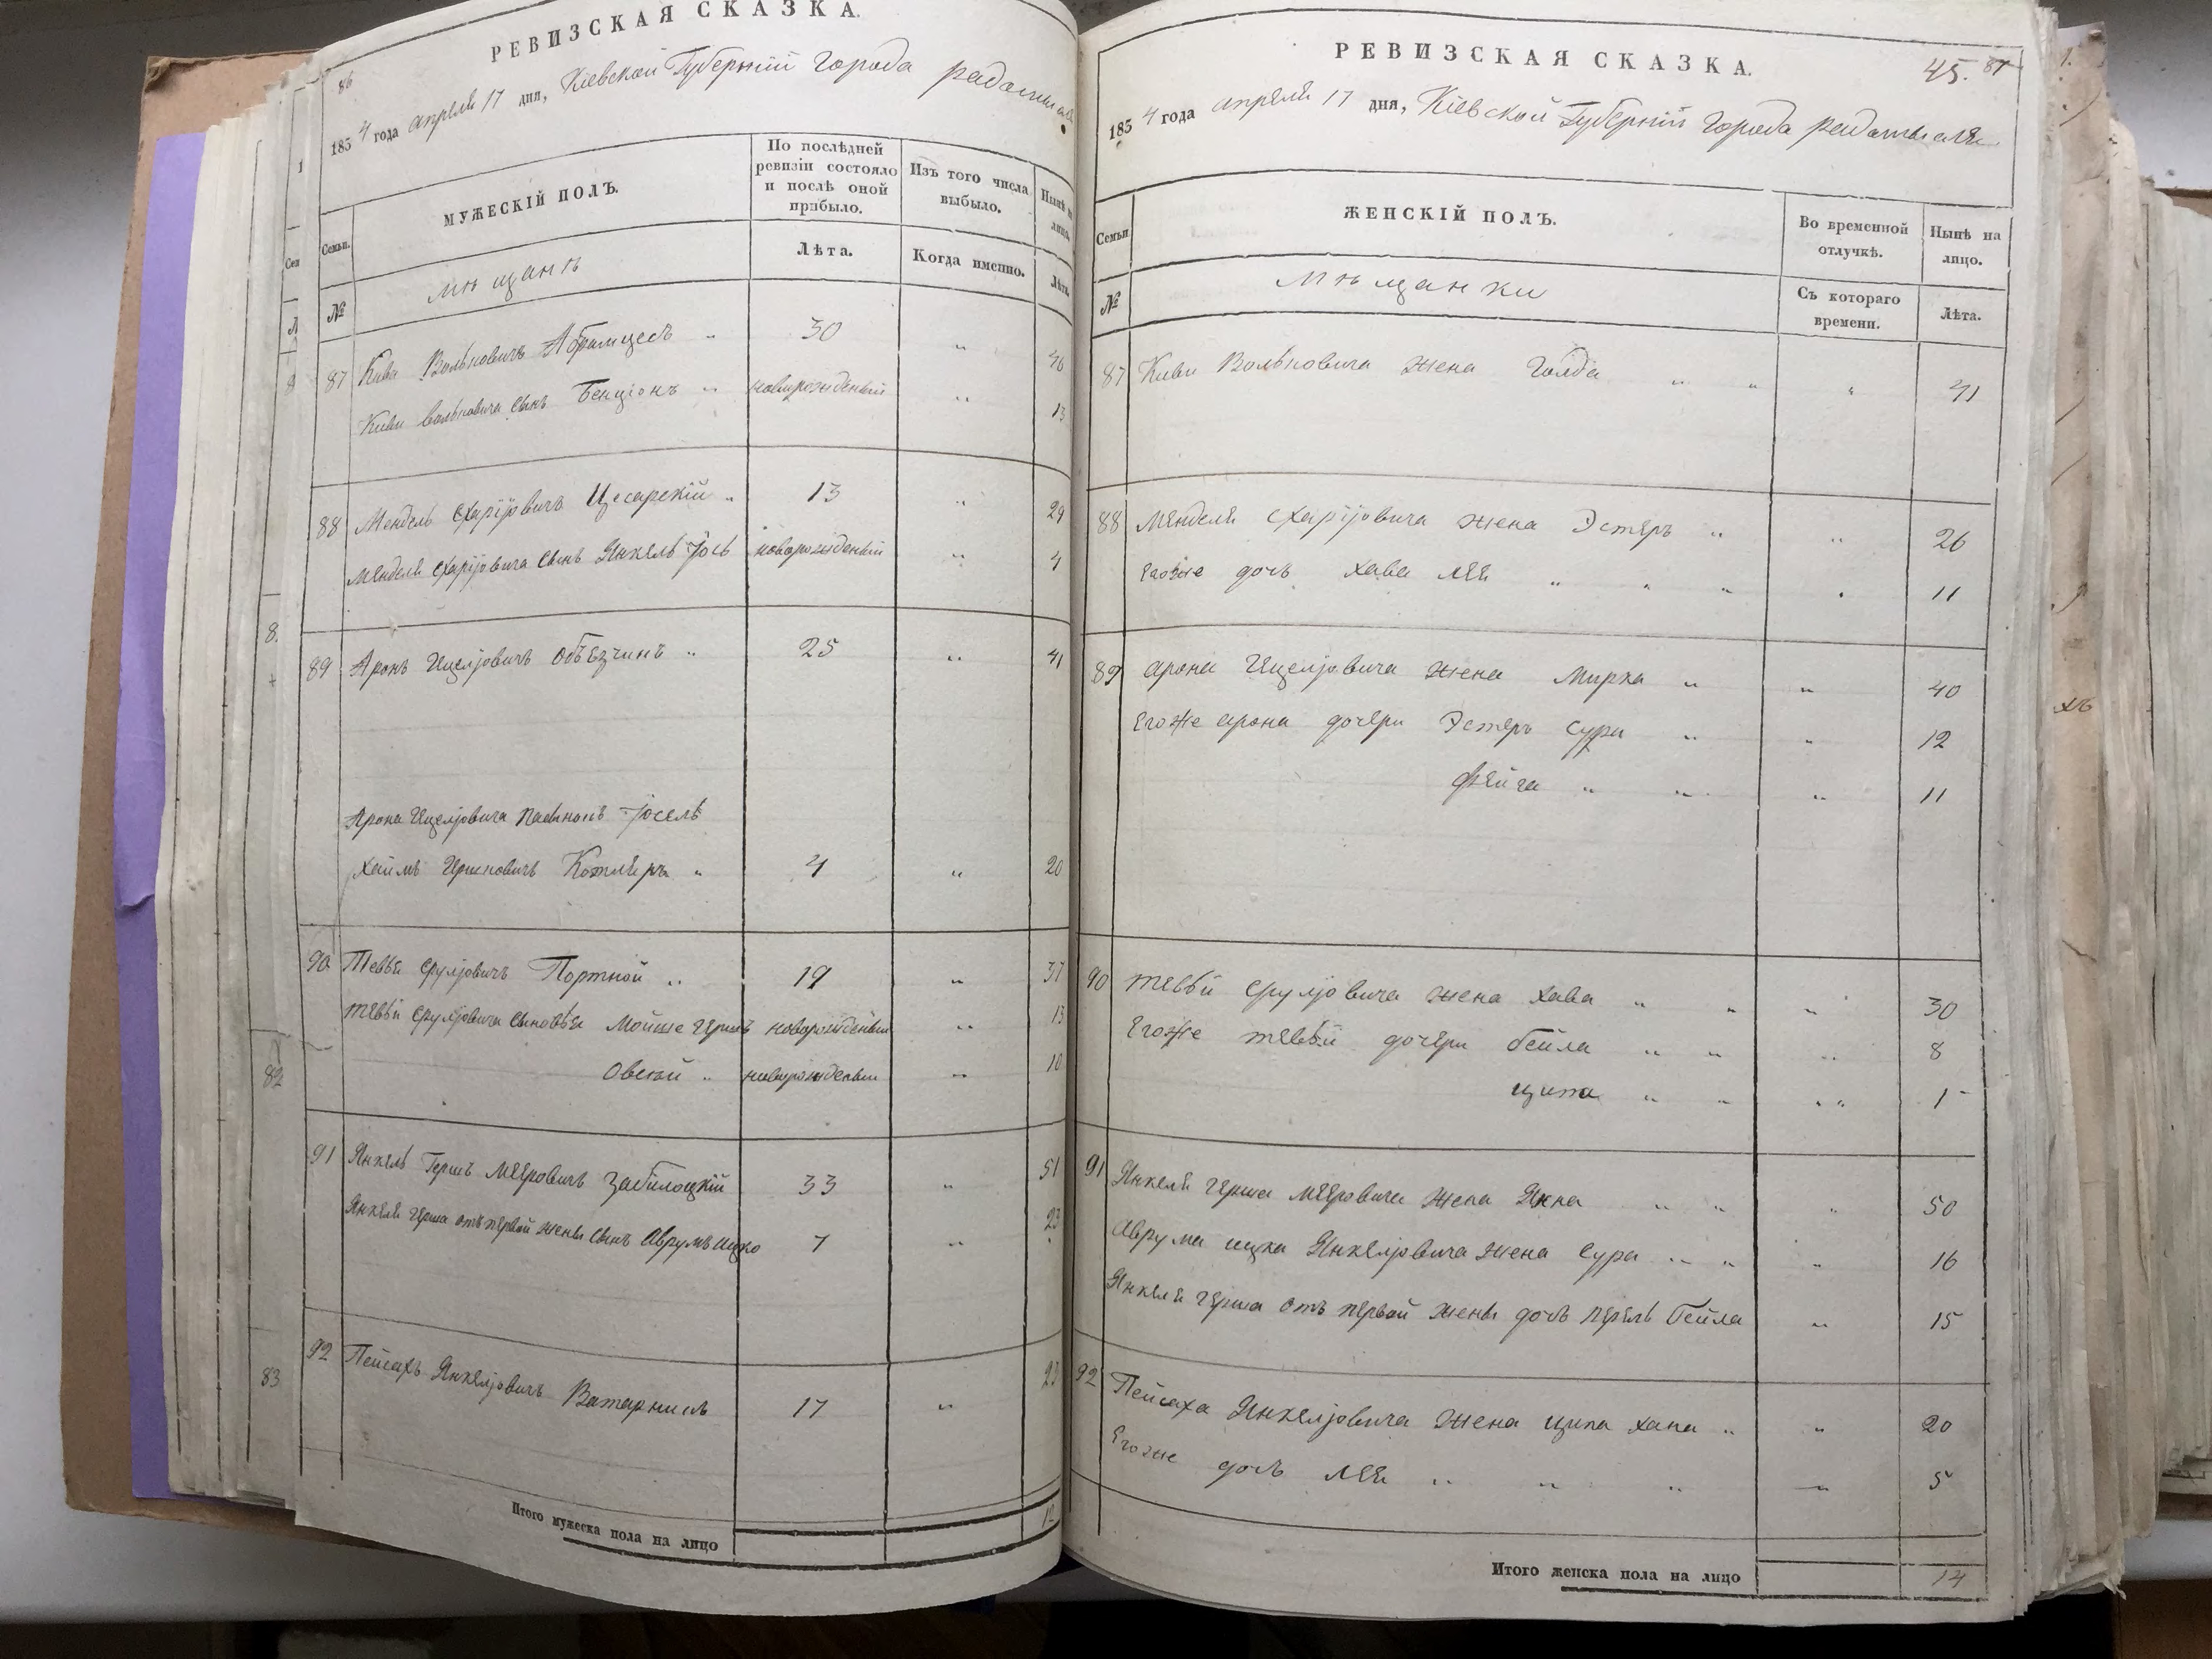 РЕВИЗСКАЯ СКАЗКА.
86
185 4 года апреля 17 дня, Кіевской Губерній города
Семьи.
МУЖЕСКІЙ ПОЛЪ.
По послѣдней ревизіи состояло и послѣ оной прибыло.
Изъ того числа выбыло.
Нынѣ
лицо.
Лѣта.
Когда именно.
Лѣта.
№
мѣщанѣ
87 Кива Вольковичъ „ 30 „ 46
Киви вольковича сынъ Бенціонъ „ новорожденый „ 13
88 Мендель Схаріјовичъ Цесарскій „ 13 „ 29
Менделя Схаріјовича сынъ Янкель Јось новорожденый „ 4
89 Аронъ Ицеліовичъ Обѣзчикъ „ 25 „ 41
Арона Ицеліовича пасынокъ Јосель
Хаймъ Ершковичъ Котляръ „ 4 „ 20
90 Тевья Срулјовичъ Портной „ 19 „ 37
Тевьи Срулјовича сыновья Мойше Гершъ новорожденый „ 13
Овсѣй „ новорожденый „ 10
91 Янкель Гершъ Мееровичъ Забилоцкій 33 „ 51
Янкеля Герша отъ первой жены сынъ Аврумъ ицко 7 „ 23
92 Пейсахъ Янкелјовичъ 17 „ 23
83
82
Итого мужеска пола на лицо 12
РЕВИЗСКАЯ СКАЗКА.
45. 87
185 4 года апреля 17 дня, Кіевской Губерній Города радомысля
Семьи.
ЖЕНСКІЙ ПОЛЪ.
Во временной отлучкѣ.
Нынѣ на лицо.
№
мѣщанки
Съ котораго времени.
Лѣта.
87 Киви Вольковича жена Голда „ „ „ 41
88 Менделя Схаріјовича жена Эстеръ „ „ 26
Егоже дочь хава лея „ „ „ 11
89 Арона Ицелјовича жена Мирка „ „ 40
Егоже арона дочери Эстеръ Сура „ „ 12
Фейга „ „ „ 11
90 Тевьи Срулјовича жена хава „ „ „ 30
Егоже тевьи дочери бейла „ „ „ 8
ципа „ „ „ 1
91 Янкеля герша Мееровича жена „ „ „ 50
Аврума ицка Янкелјовича жена Сура „ „ „ 16
Янкеля герша отъ первой жены дочь перль бейла „ 15
92 Пейсаха Янкелјовича жена ципа хана „ „ 20
Егоже дочь лея „ „ „ „ 5
Итого женска пола на лицо 14